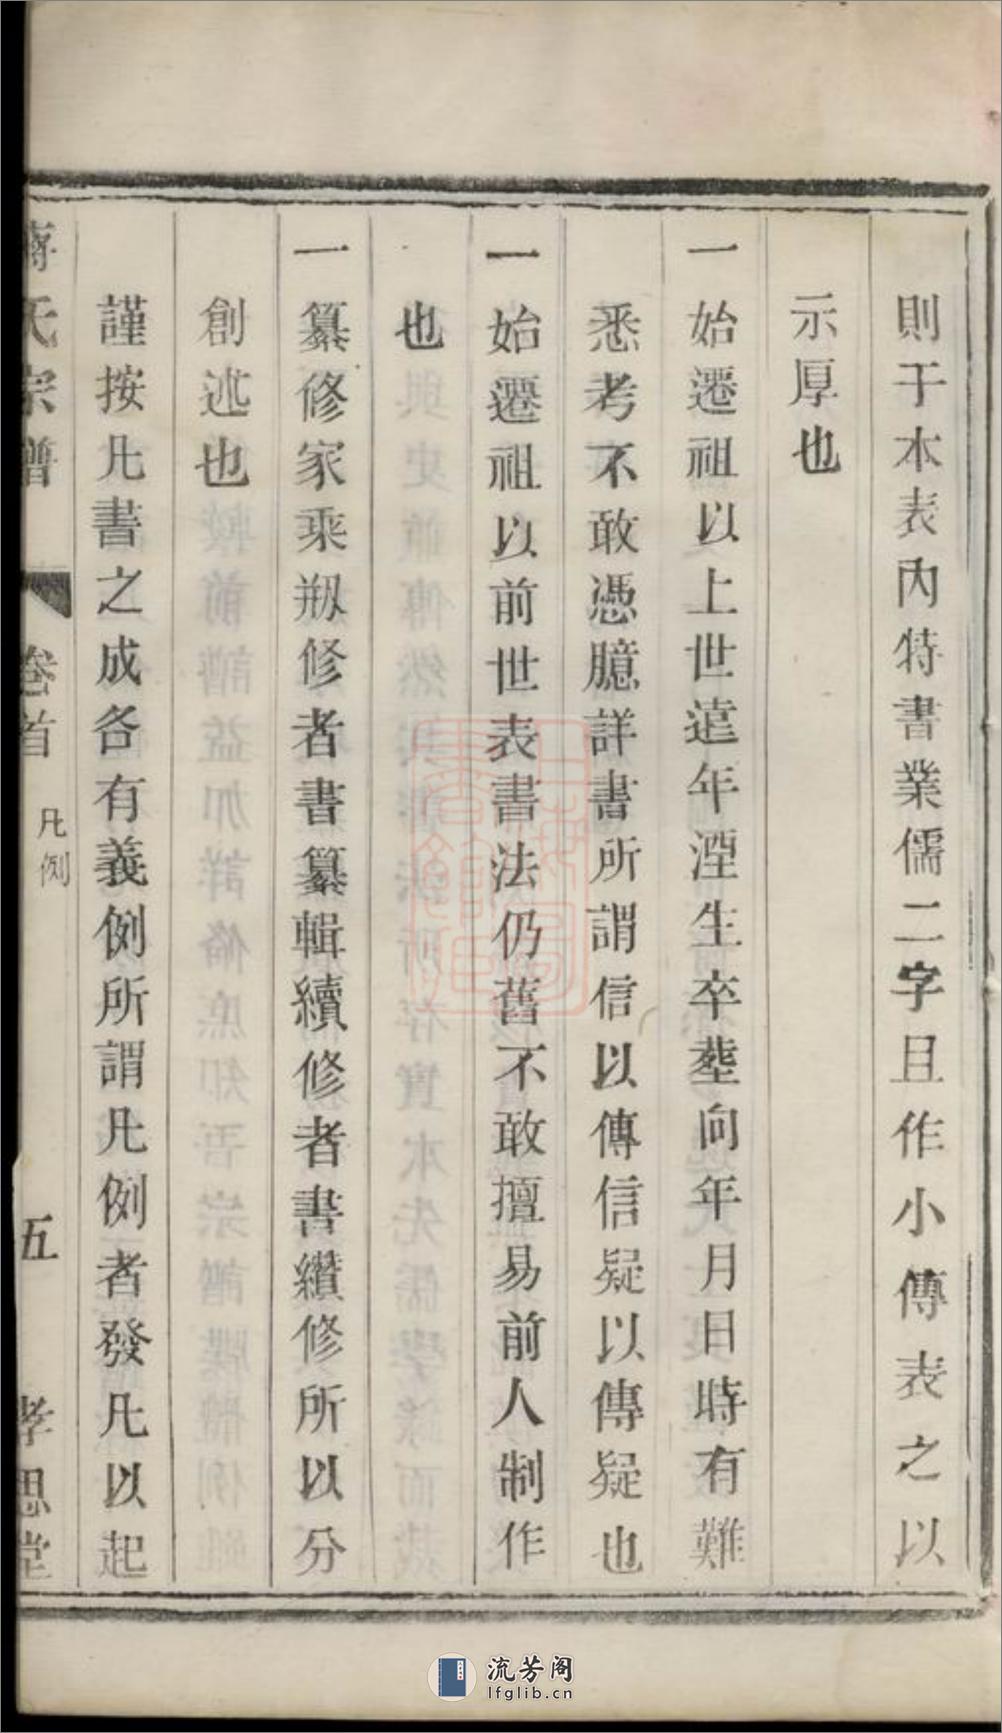 則于本表內特書業儒二字且作小傳表之以
示厚也
一始遷祖以上世遠年湮生卒塟向年月日時有難
悉考不敢憑臆詳書所謂信以傳信疑以傳疑也
一始遷祖以前世表書法仍舊不敢擅易前人制作
也
一纂修家乘剏修者書纂輯續修者書纘修所以分
創述也
謹按凡書之成各有義例所謂凡例者發凡以起
蔣氏宗譜
卷首
凡例
五
孝思堂
流芳阁
lfglib.cn